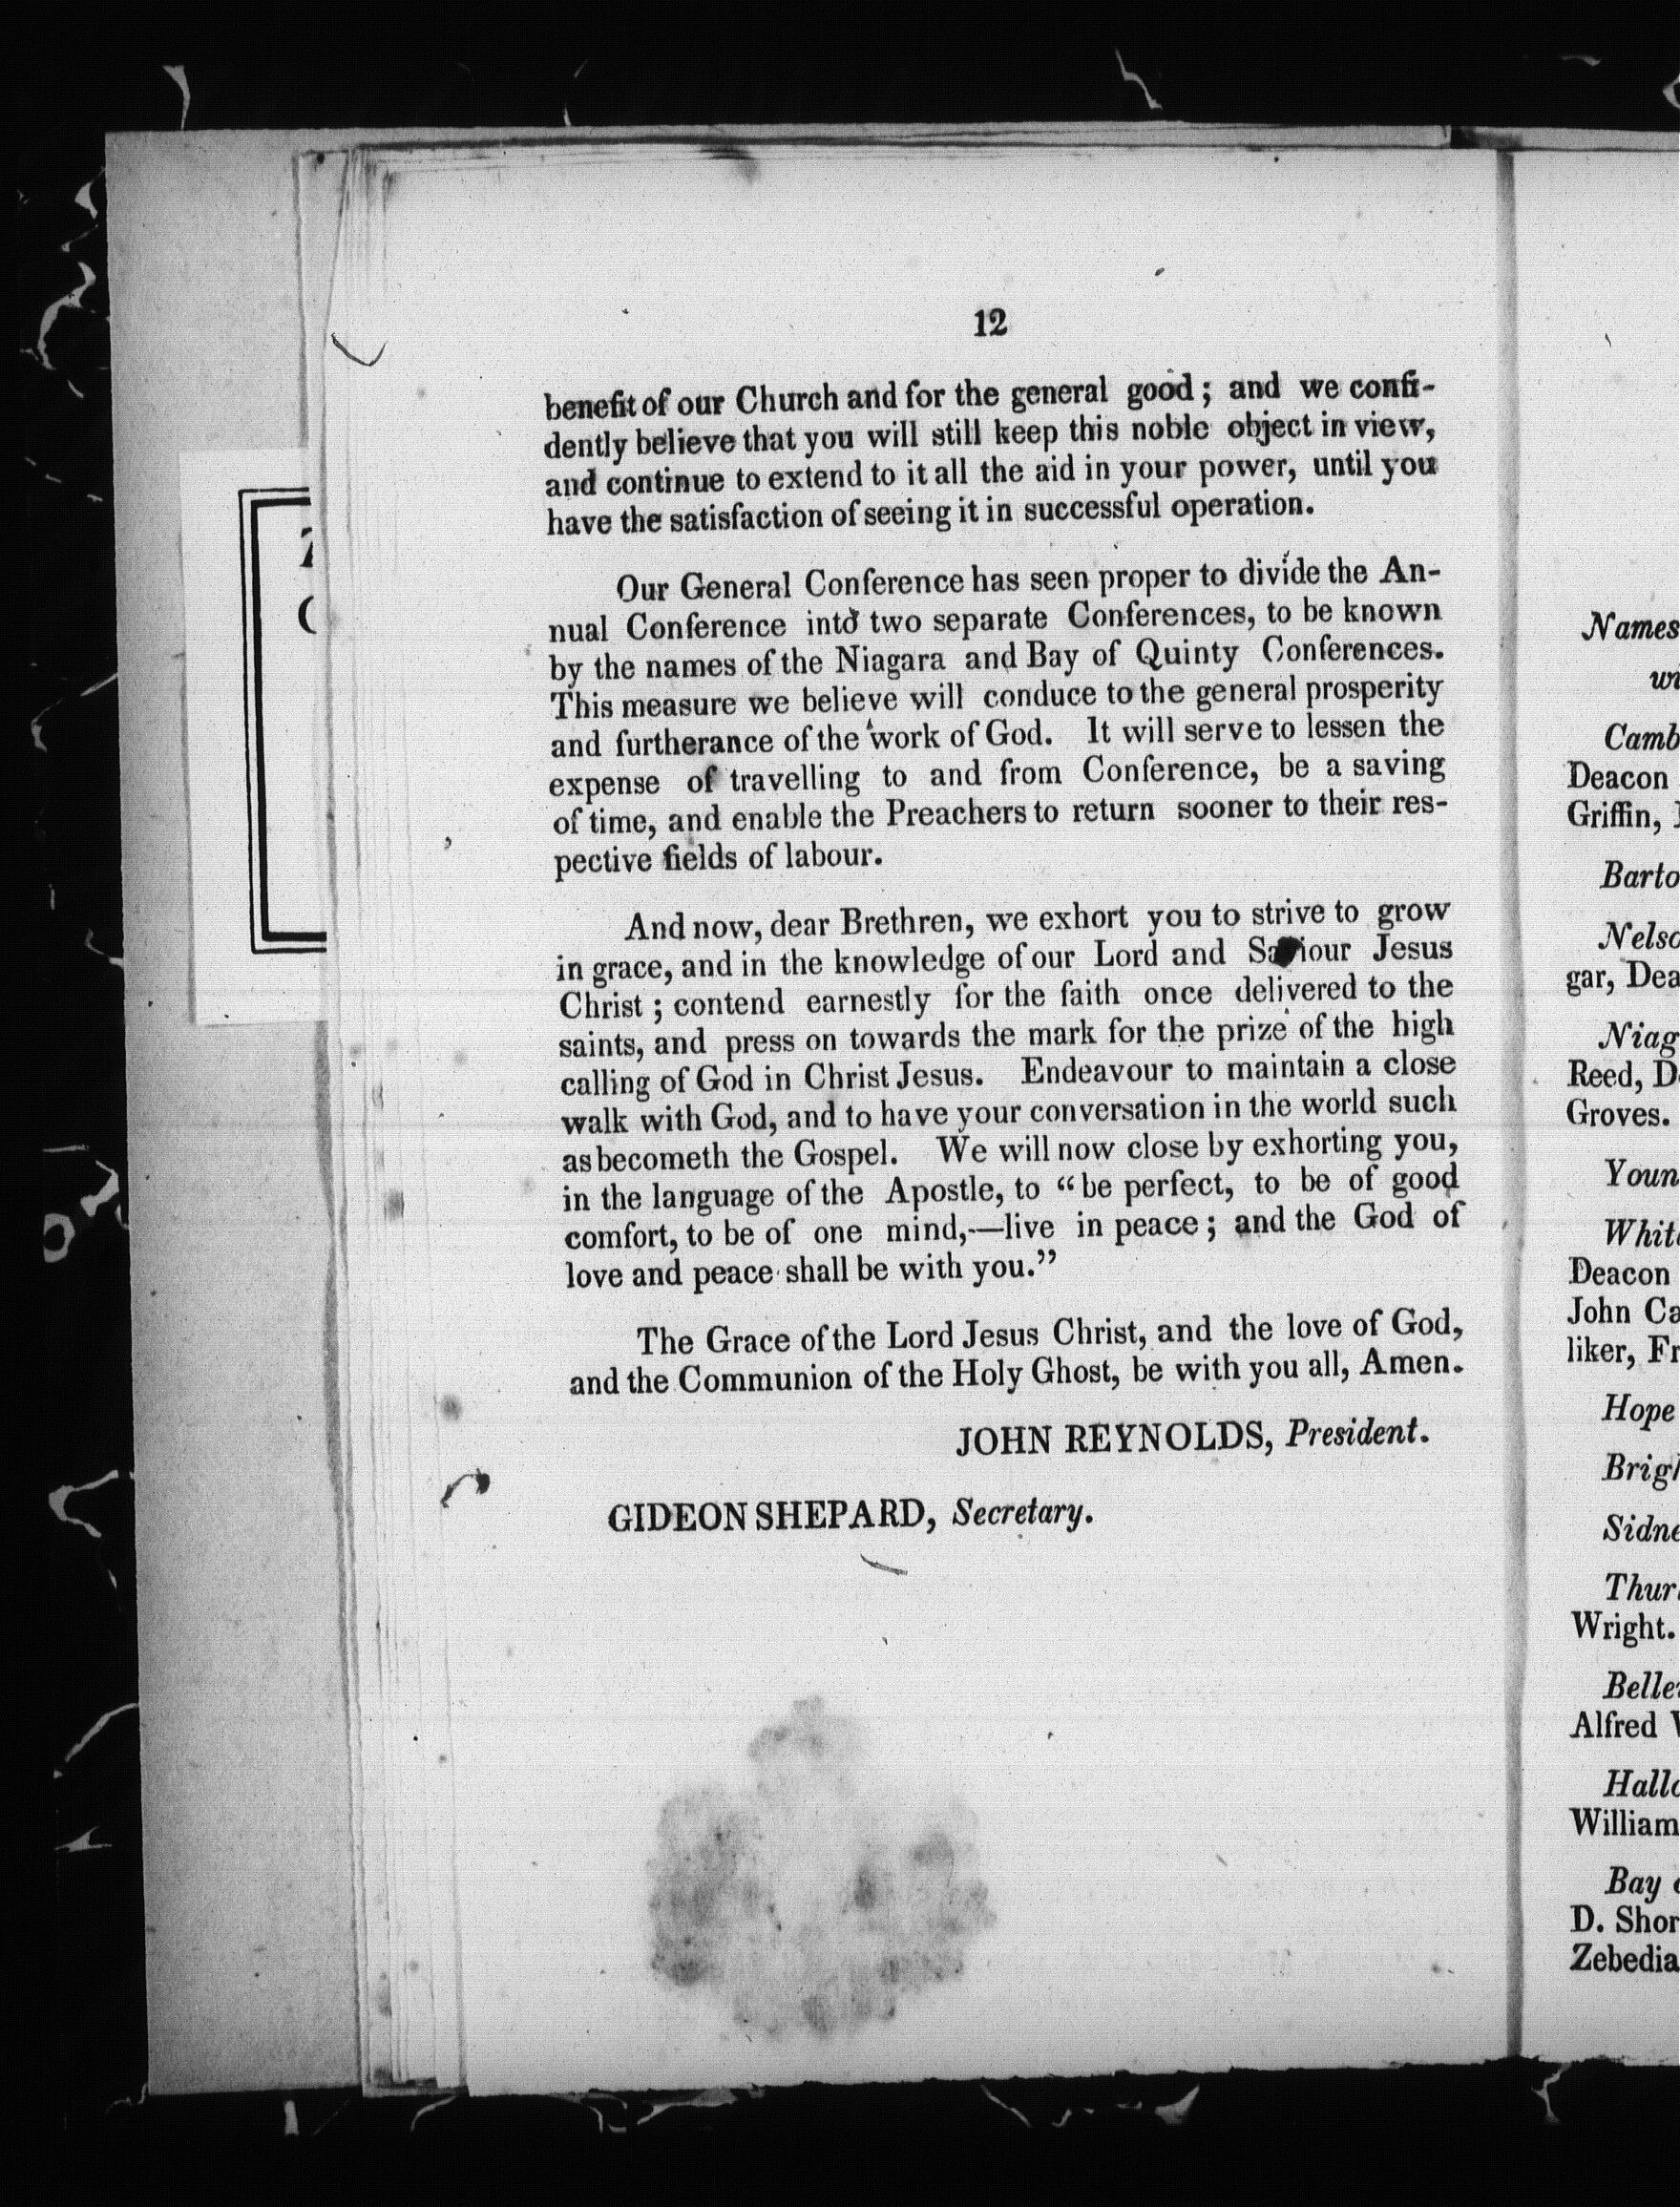 12
benefit of our Church and for the general good; and we confi-
dently believe that you will still keep this noble object in view,
and continue to extend to it all the aid in your power, until you
have the satisfaction of seeing it in successful operation.
Our General Conference has seen proper to divide the An-
nual Conference into two separate Conferences, to be known
by the names of the Niagara and Bay of Quinty Conferences.
This measure we believe will conduce to the general prosperity
and furtherance of the work of God. It will serve to lessen the
expense of travelling to and from Conference, be a saving
of time, and enable the Preachers to return sooner to their res-
pective fields of labour.
And now, dear Brethren, we exhort you to strive to grow
in grace, and in the knowledge of our Lord and Saviour Jesus
Christ; contend earnestly for the faith once delivered to the
saints, and press on towards the mark for the prize of the high
calling of God in Christ Jesus. Endeavour to maintain a close
walk with God, and to have your conversation in the world such
as becometh the Gospel. We will now close by exhorting you,
in the language of the Apostle, to “be perfect, to be of good
comfort, to be of one mind,—live in peace; and the God of
love and peace shall be with you.”
The Grace of the Lord Jesus Christ, and the love of God,
and the Communion of the Holy Ghost, be with you all, Amen.
JOHN REYNOLDS, President.
GIDEON SHEPARD, Secretary.
Names
Deacon
Griffin,
gar,
Reed,
Groves.
Deacon
John
liker,
Hope
Wright.
Alfred
William
Bay
D.